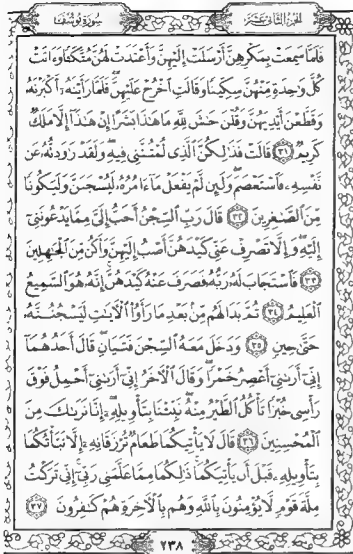 الجزء الثانى عشر
سورة يوسف
فَلَمَّا سَمِعَتْ بِمَكْرِهِنَّ أَرْسَلَتْ إِلَيْهِنَّ وَأَعْتَدَتْ لَهُنَّ مُتَّكَـًٔا وَءَاتَتْ
كُلَّ وَٰحِدَةٍ مِّنْهُنَّ سِكِّينًا وَقَالَتِ ٱخْرُجْ عَلَيْهِنَّ ۖ فَلَمَّا رَأَيْنَهُۥٓ أَكْبَرْنَهُۥ
وَقَطَّعْنَ أَيْدِيَهُنَّ وَقُلْنَ حَـٰشَ لِلَّهِ مَا هَـٰذَا بَشَرًا إِنْ هَـٰذَآ إِلَّا مَلَكٌ
كَرِيمٌ ﴿٣١﴾ قَالَتْ فَذَٰلِكُنَّ ٱلَّذِى لُمْتُنَّنِى فِيهِ ۖ وَلَقَدْ رَٰوَدتُّهُۥ عَن
نَّفْسِهِۦ فَٱسْتَعْصَمَ ۖ وَلَئِن لَّمْ يَفْعَلْ مَآ ءَامُرُهُۥ لَيُسْجَنَنَّ وَلَيَكُونًا
مِّنَ ٱلصَّـٰغِرِينَ ﴿٣٢﴾ قَالَ رَبِّ ٱلسِّجْنُ أَحَبُّ إِلَىَّ مِمَّا يَدْعُونَنِىٓ
إِلَيْهِ ۖ وَإِلَّا تَصْرِفْ عَنِّى كَيْدَهُنَّ أَصْبُ إِلَيْهِنَّ وَأَكُن مِّنَ ٱلْجَـٰهِلِينَ
﴿٣٣﴾ فَٱسْتَجَابَ لَهُۥ رَبُّهُۥ فَصَرَفَ عَنْهُ كَيْدَهُنَّ ۚ إِنَّهُۥ هُوَ ٱلسَّمِيعُ
ٱلْعَلِيمُ ﴿٣٤﴾ ثُمَّ بَدَا لَهُم مِّنۢ بَعْدِ مَا رَأَوُا۟ ٱلْـَٔايَـٰتِ لَيَسْجُنُنَّهُۥ
حَتَّىٰ حِينٍ ﴿٣٥﴾ وَدَخَلَ مَعَهُ ٱلسِّجْنَ فَتَيَانِ ۖ قَالَ أَحَدُهُمَآ
إِنِّىٓ أَرَىٰنِىٓ أَعْصِرُ خَمْرًا ۖ وَقَالَ ٱلْـَٔاخَرُ إِنِّىٓ أَرَىٰنِىٓ أَحْمِلُ فَوْقَ
رَأْسِى خُبْزًا تَأْكُلُ ٱلطَّيْرُ مِنْهُ ۖ نَبِّئْنَا بِتَأْوِيلِهِۦٓ ۖ إِنَّا نَرَىٰكَ مِنَ
ٱلْمُحْسِنِينَ ﴿٣٦﴾ قَالَ لَا يَأْتِيكُمَا طَعَامٌ تُرْزَقَانِهِۦٓ إِلَّا نَبَّأْتُكُمَا
بِتَأْوِيلِهِۦ قَبْلَ أَن يَأْتِيَكُمَا ۚ ذَٰلِكُمَا مِمَّا عَلَّمَنِى رَبِّىٓ ۚ إِنِّى تَرَكْتُ
مِلَّةَ قَوْمٍ لَّا يُؤْمِنُونَ بِٱللَّهِ وَهُم بِٱلْـَٔاخِرَةِ هُمْ كَـٰفِرُونَ ﴿٣٧﴾
٢٣٨